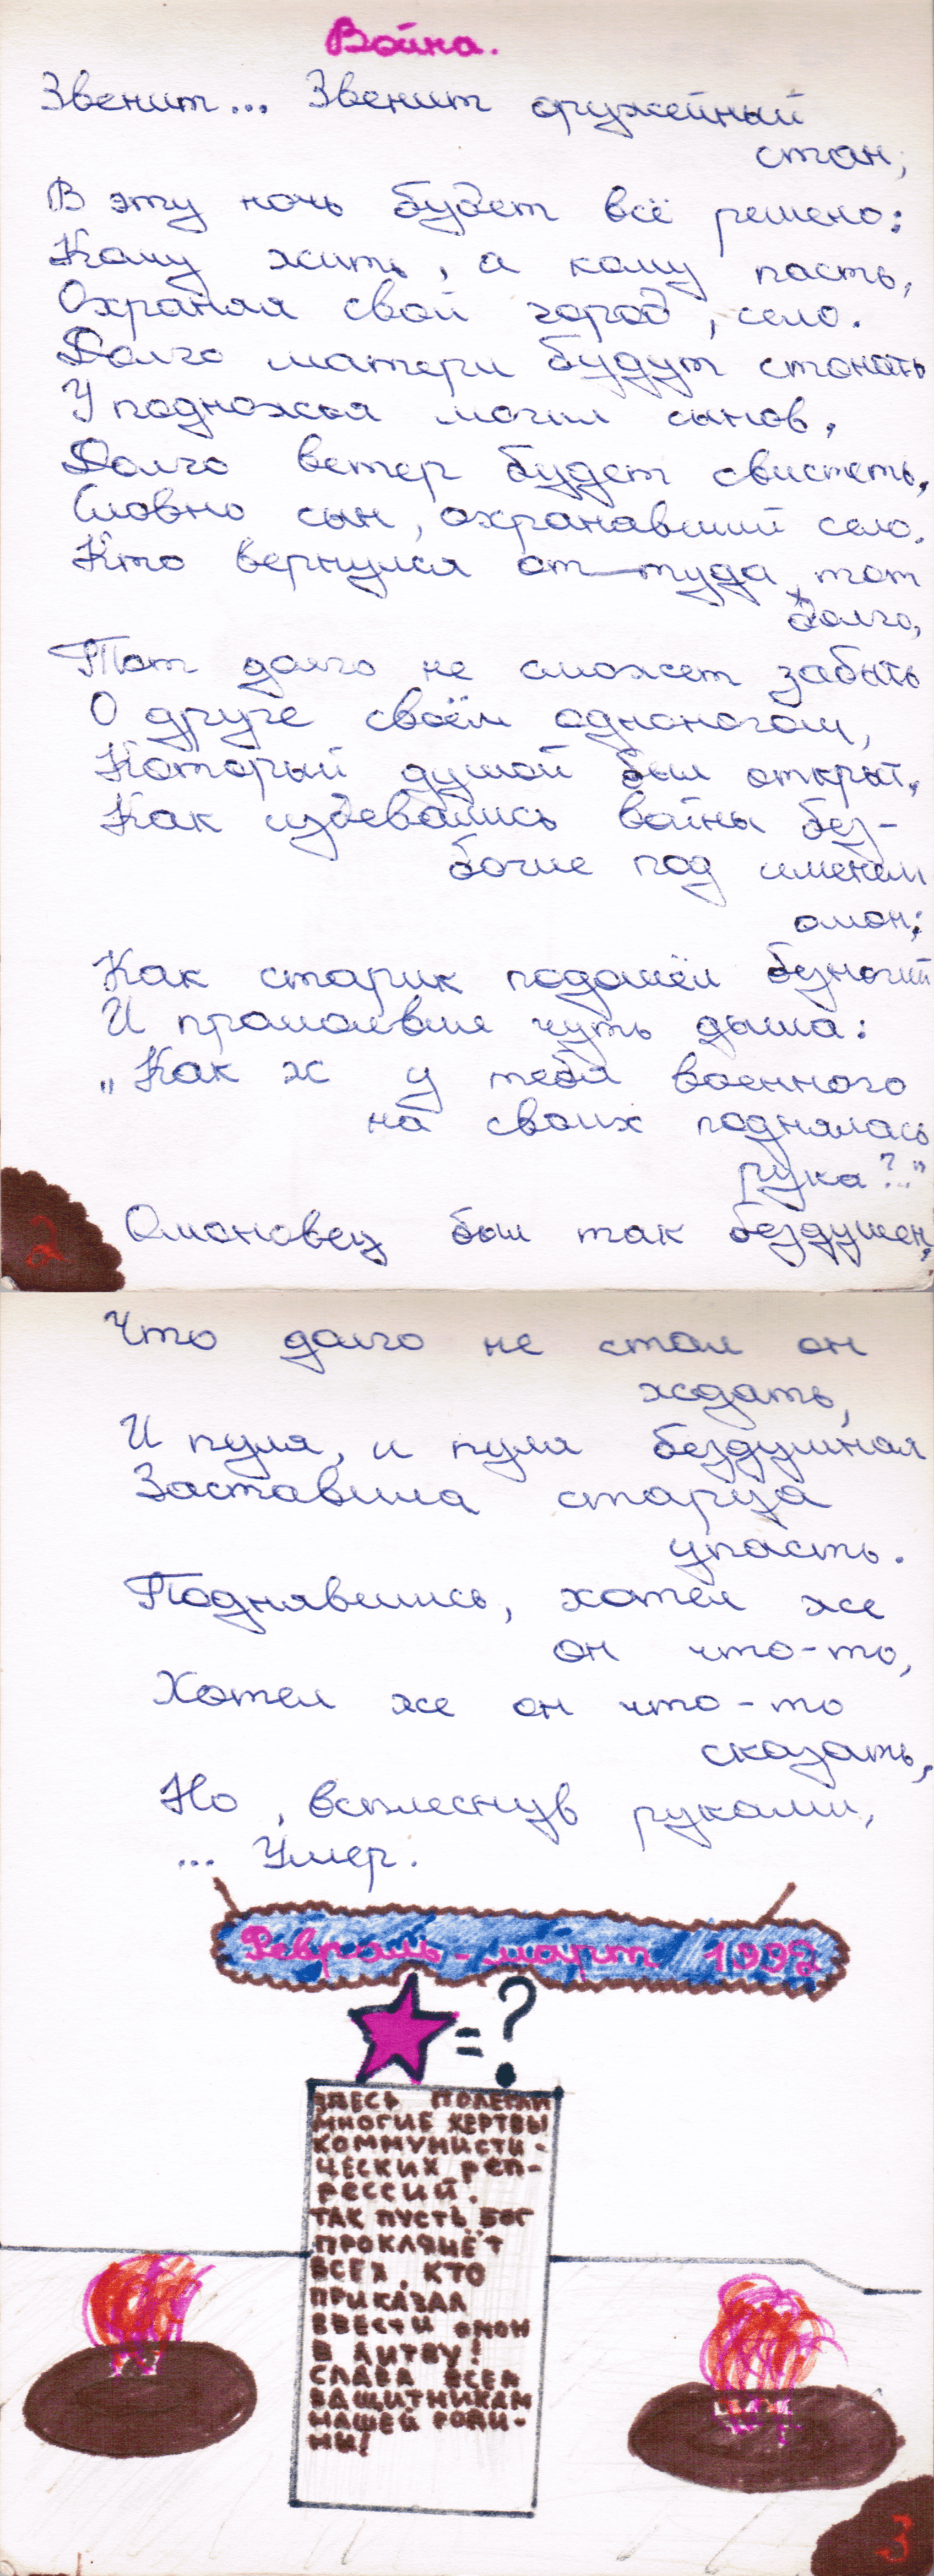 Война.
Звенит... Звенит оружейный
стан,
В эту ночь будет всё решено:
Кому жить, а кому пасть,
Охраняя свой город, село.
Долго матери будут стонать
У подножья могил сынов,
Долго ветер будет свистеть,
Словно сын, охранавший село.
Кто вернулся от туда, тот
долго,
Тот долго не сможет забыть
О друге своём одноногом,
Который душой был открыт,
Как издевались войны без-
божие под именем
омон;
Как старик подошёл безногий
И промолвил чуть дыша:
„Как ж у тебя военного
на своих поднялась
рука?.."
Омановец был так бездушен,
2
Что долго не стал он
ждать,
И пуля, и пуля бездушная
Заставила старца
упасть.
Поднявшись, хотел же
он что-то,
Хотел же он что-то
сказать,
Но, всплеснув руками,
... Умер.
Февраль-март 1992
=?
ЗДЕСЬ ПОЛЕГЛИ
МНОГИЕ ЖЕРТВЫ
КОММУНИСТИ-
ЧЕСКИХ РЕП-
РЕССИЙ.
ТАК ПУСТЬ БОГ
ПРОКЛЯНЁТ
ВСЕХ, КТО
ПРИКАЗАЛ
ВВЕСТИ ОМОН
В ЛИТВУ!
СЛАВА ВСЕМ
ЗАЩИТНИКАМ
НАШЕЙ РОДИ-
НЫ!
3